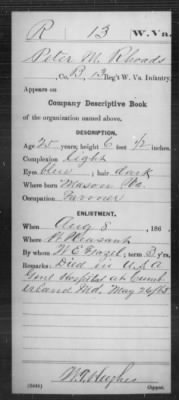 R 13 W.Va.
Peter M. Rhoads
, Co. B, 13 Reg't W. Va. Infantry.
Appears on
Company Descriptive Book
of the organization named above.
DESCRIPTION.
Age 20 years; height 6 feet 1/2 inches.
Complexion light
Eyes blue; hair dark
Where born Mason Co.
Occupation Farmer
ENLISTMENT.
When Aug 8, 186
Where Pt Pleasant
By whom W E ; term 3 y'rs.
Remarks: Died in U.S.A
Genl Hospital at Cumb
erland Md. May 26/65
Hughes
(3846) Copyist.